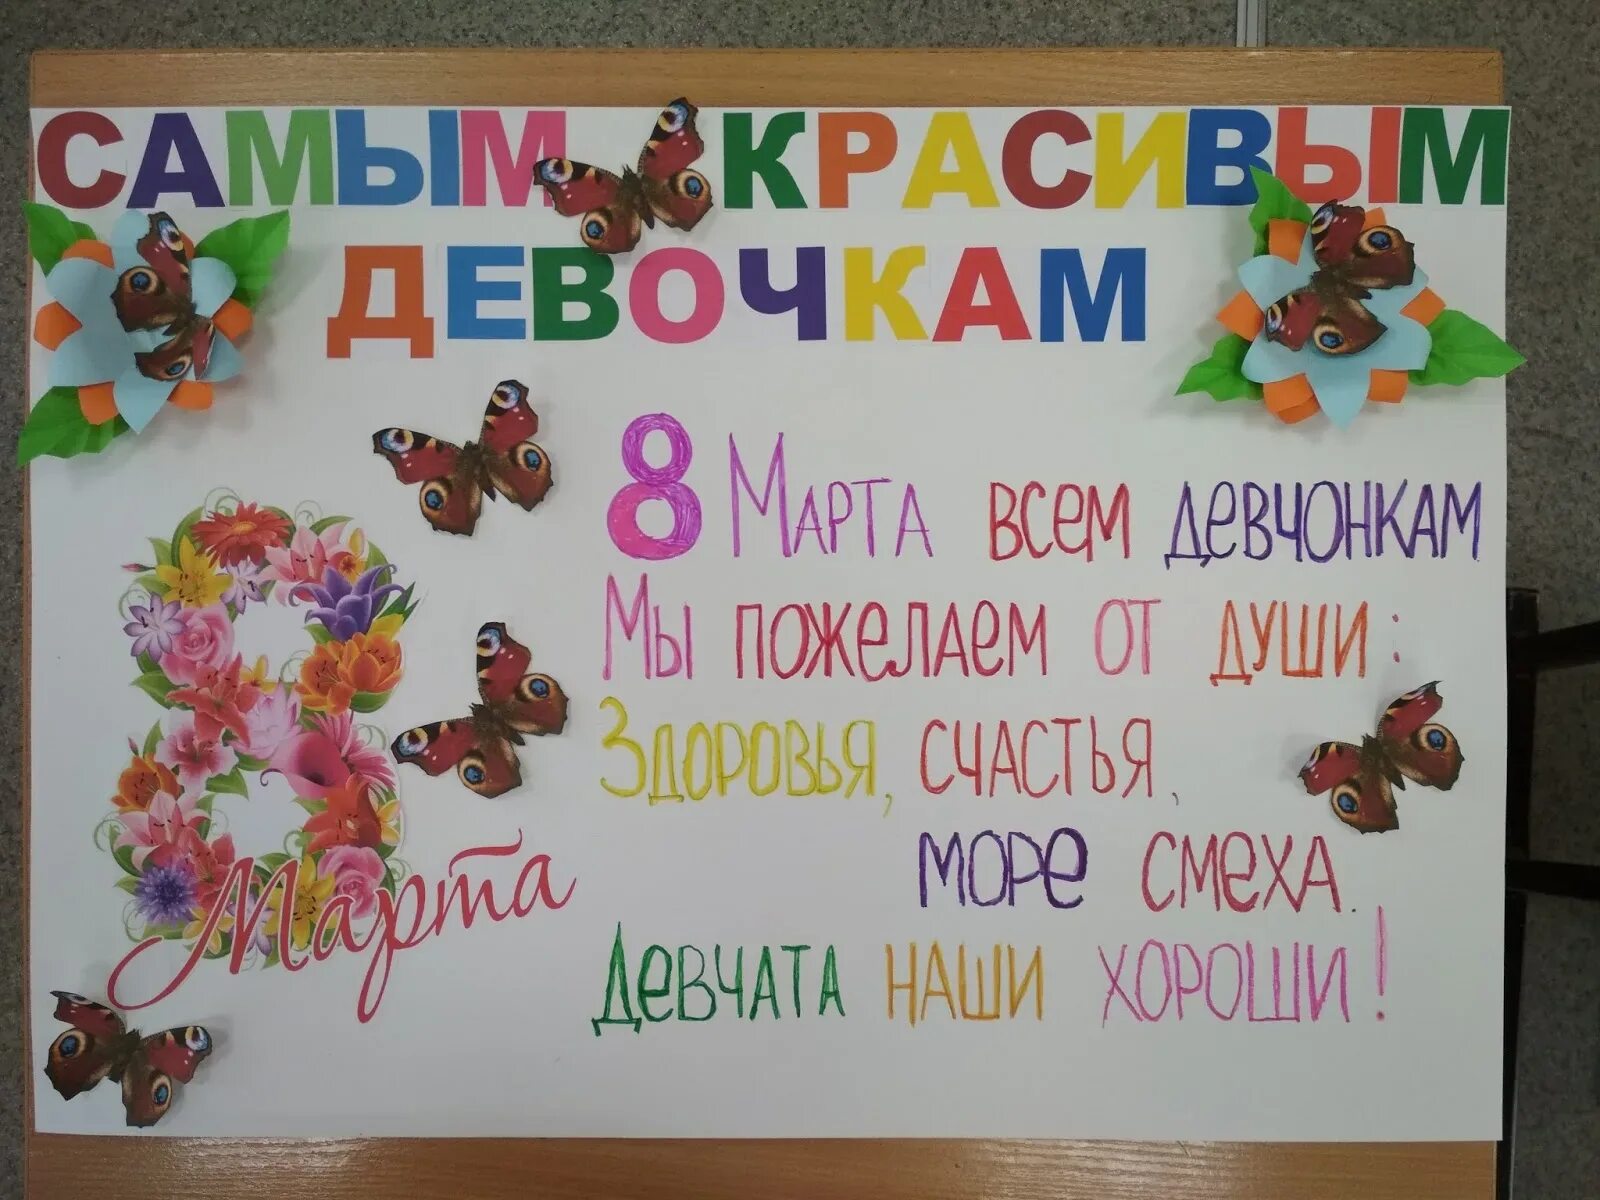 САМЫМ КРАСИВЫМ
ДЕВОЧКАМ
8 Марта
8 Марта всем девчонкам
Мы пожелаем от души:
Здоровья, счастья,
море смеха.
Девчата наши хороши!